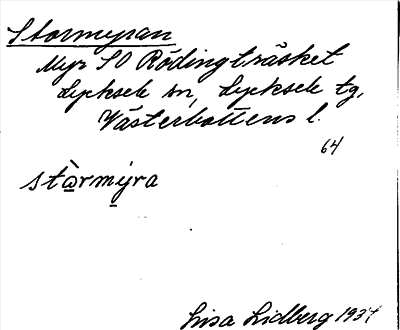 Stormyran
Myr SO Rödingträsket
Lycksele sn, Lycksele tg,
Västerbottens l.
64
stà̱rmy̱ra
Lisa Lidberg 1937